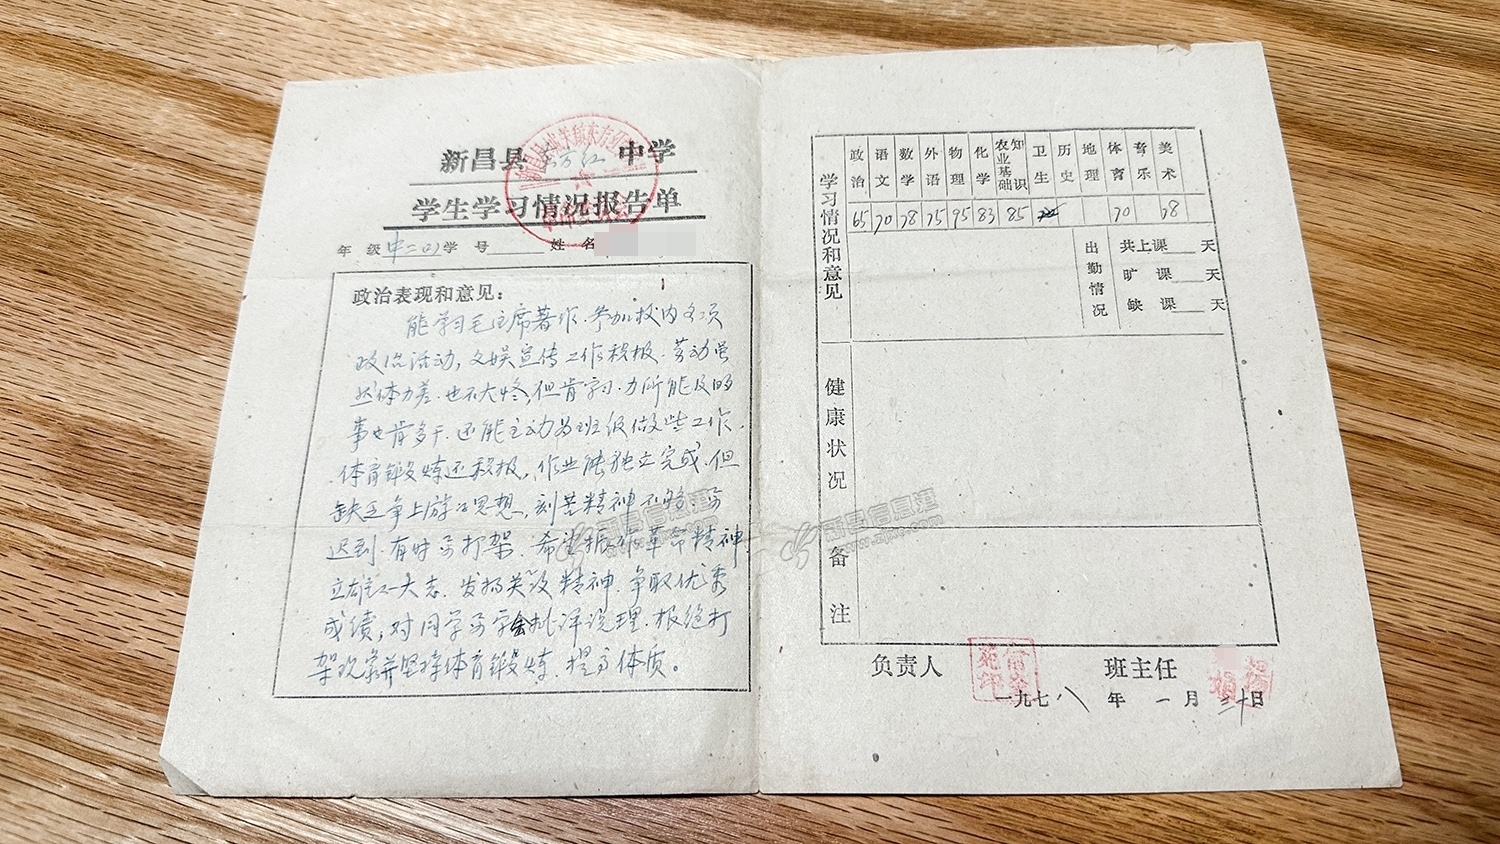 新昌县 东方红 中学
学生学习情况报告单
年 级 中二(2) 学 号 姓 名
政治表现和意见：
能学习毛主席著作.参加校内各项
政治活动,文娱宣传工作积极.劳动虽
然体力差.也不大终,但肯学习.力所能及的
事也肯多干.还能主动为班级做些工作.
体育锻炼还积极,作业能独立完成.但
缺乏争上游的思想,刻苦精神不够.
迟到.有时 打架.希望振作革命精神,
立雄心大志.发扬 精神.争取优秀
成绩,对同学 学会批评说理.拒绝打
架 坚持体育锻炼.提高体质。
学习情况和意见
政治 语文 数学 外语 物理 化学 农业基础知识 卫生 历史 地理 体育 音乐 美术
65 70 78 75 95 83 85 70 78
出勤情况
共上课 天
旷 课 天
缺 课 天
健康状况
备注
新昌信息港
www.zjxc.com
负责人 班主任
一九七八 年 一 月 三十日